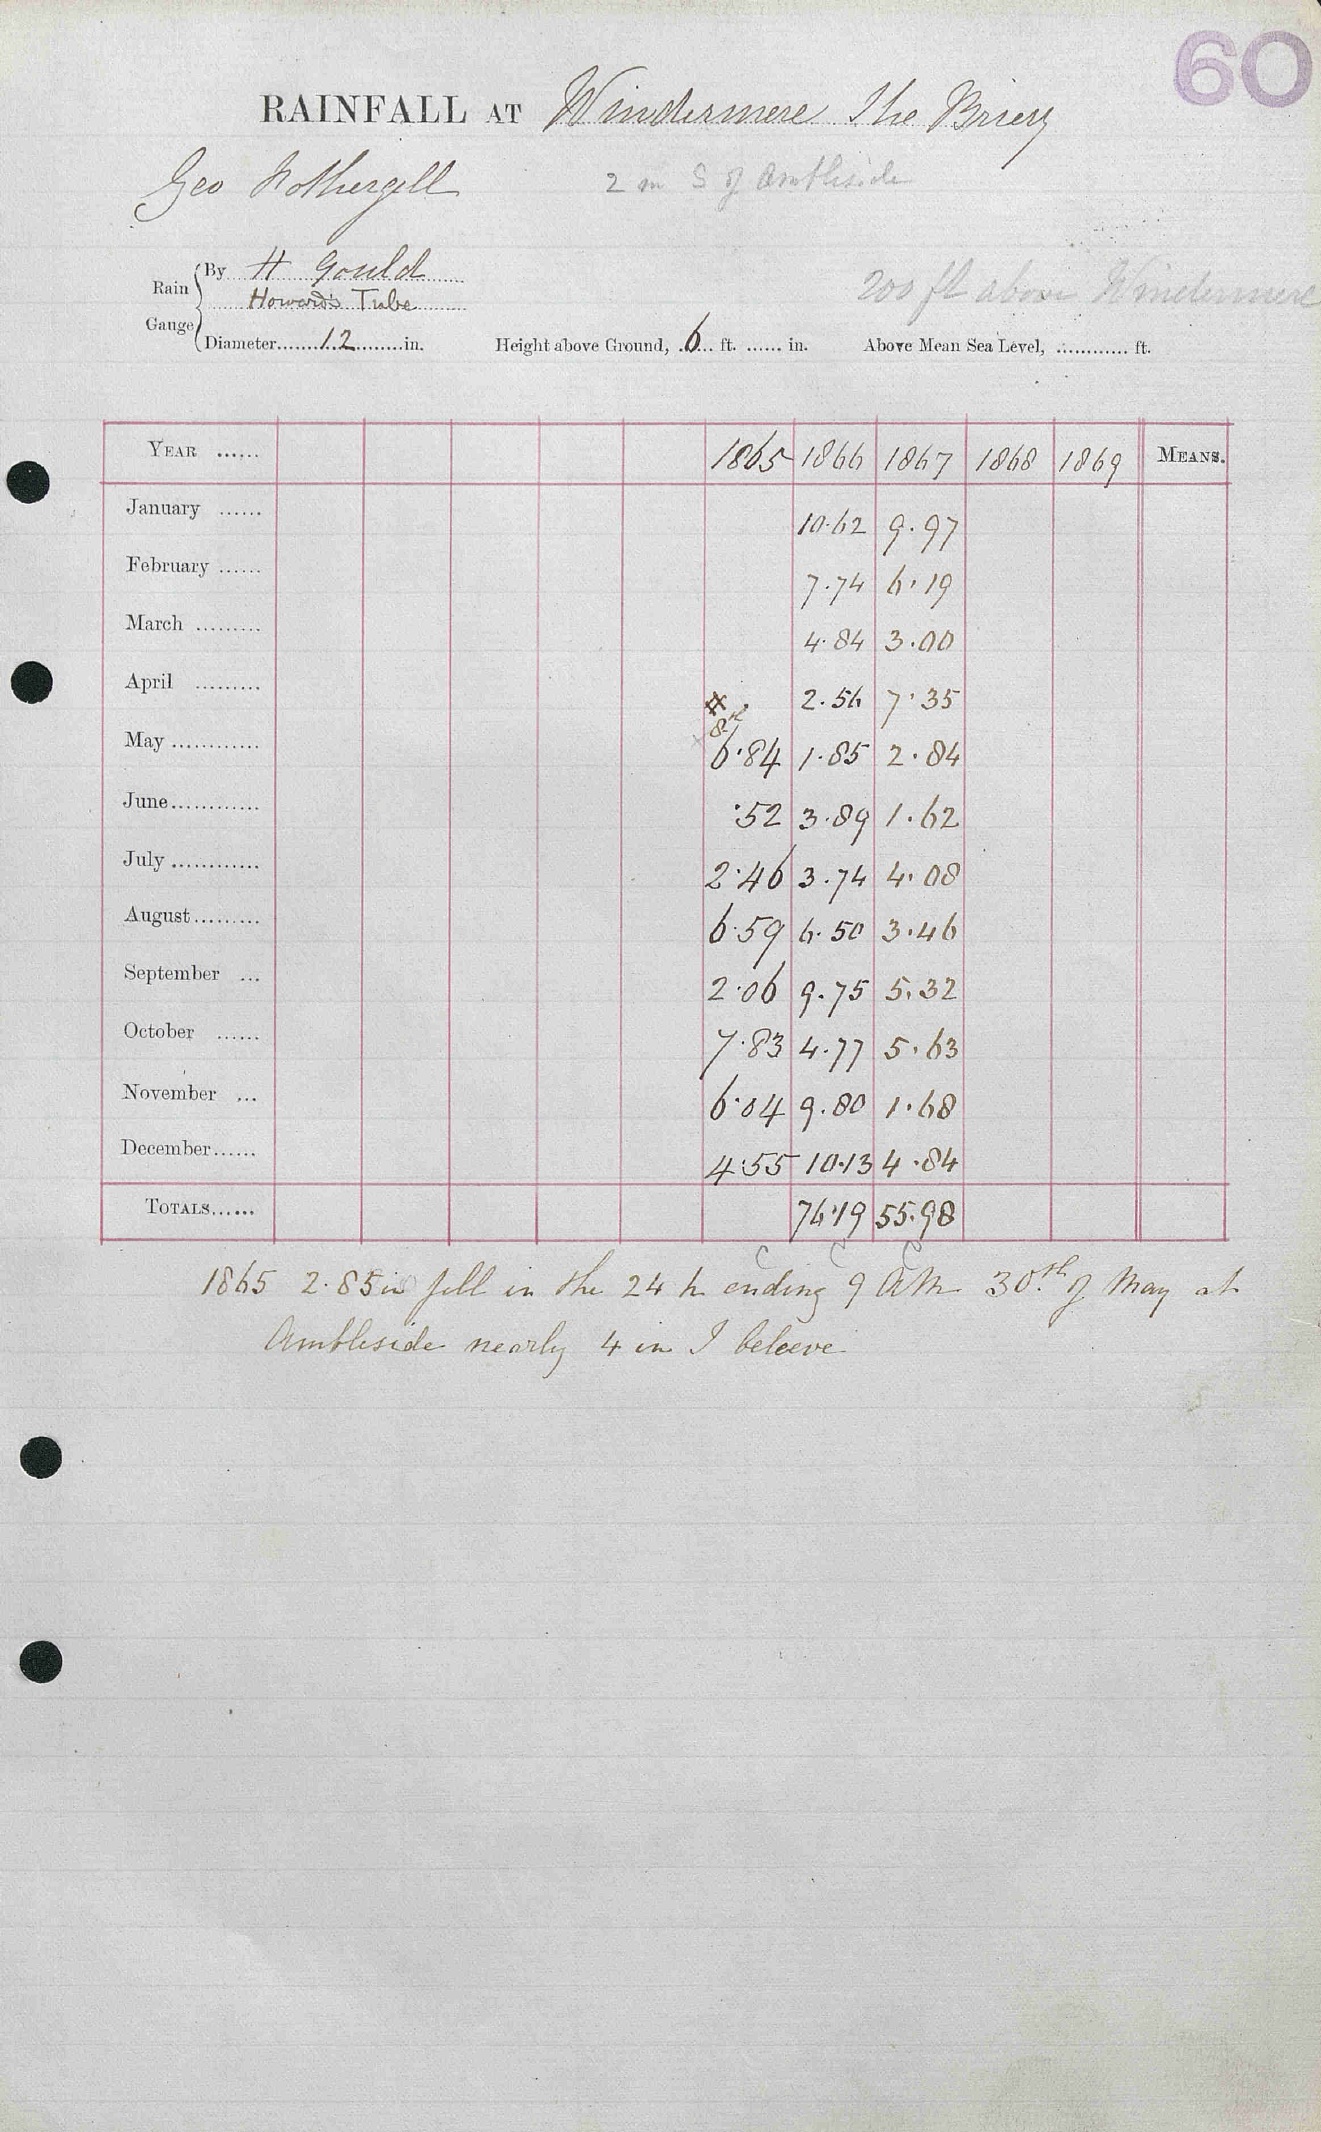 60
RAINFALL AT Windermere The Briery
Geo Fothergill 2 m S of Ambleside
Rain Gauge
By H Gould
Howard's Tube
200 ft above Windermere
Diameter.......12.........in. Height above Ground, 6 ft. ...... in. Above Mean Sea Level, ............ ft.
YEAR ...... 1865 1866 1867 1868 1869 MEANS.
January ...... 10.62 9.97
February ...... 7.74 6.19
March ......... 4.84 3.00
April ......... 2.56 7.35
8th
May ............ 6.84 1.85 2.84
June............ .52 3.89 1.62
July ............ 2.46 3.74 4.08
August......... 6.59 6.50 3.46
September ... 2.06 9.75 5.32
October ...... 7.83 4.77 5.63
November ... 6.04 9.80 1.68
December...... 4.55 10.13 4.84
TOTALS...... 76.19 55.98
1865 2.85 in fell in the 24 h ending 9 AM 30th of May at
Ambleside nearly 4 in I beleeve